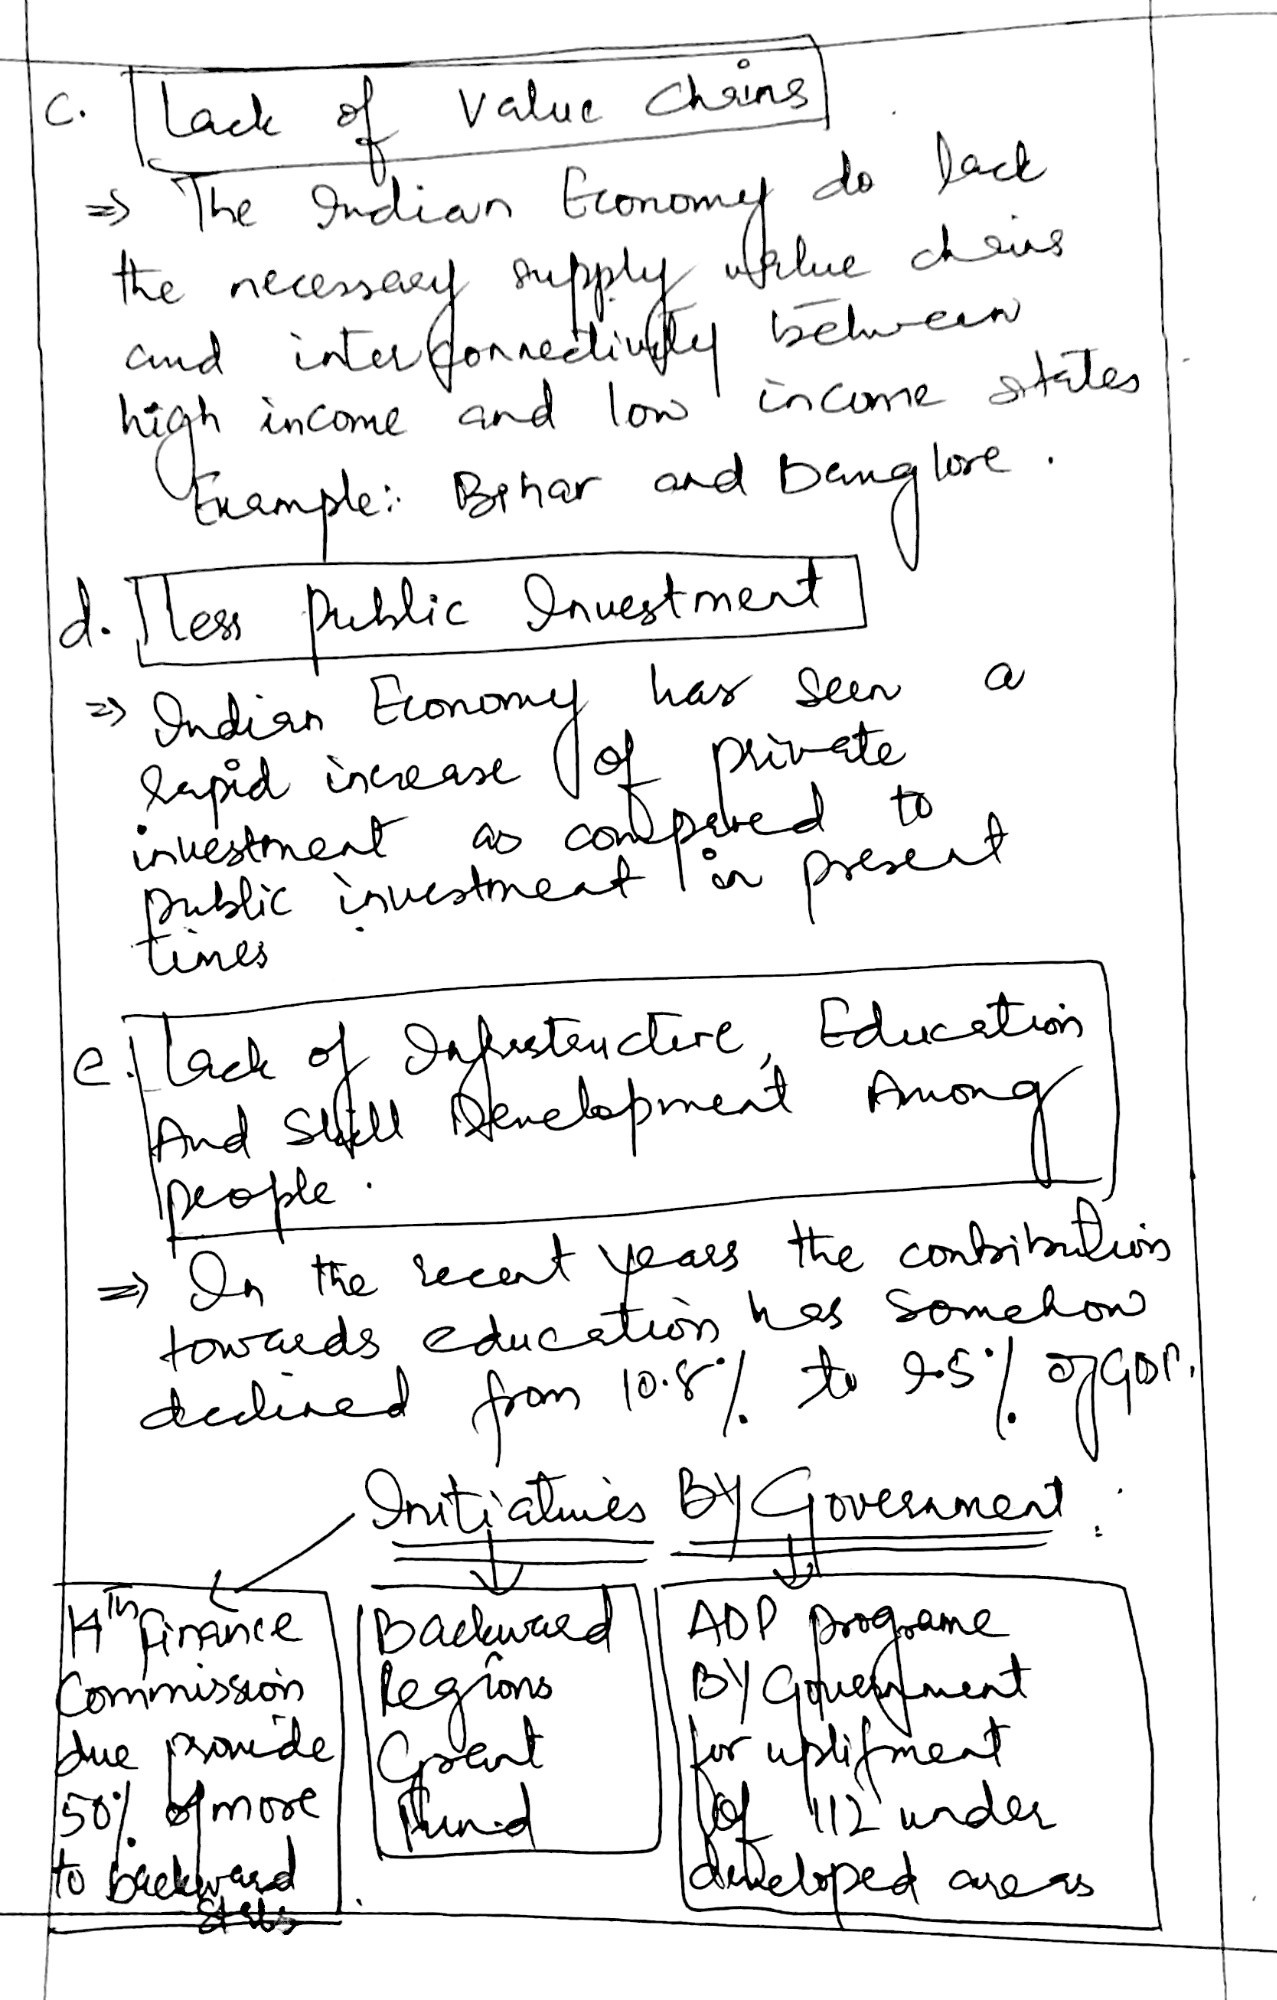 c. Lack of Value Chains
⇒ The Indian Economy do lack
the necessary supply value chains
and interconnectivity between
high income and low income states
Example: Bihar and Banglore.
d. less Public Investment
⇒ Indian Economy has seen a
rapid increase of private
investment as compared to
public investment in present
times
e. Lack of Infrastructure, Education
And Skill Development Among
people.
⇒ In the recent years the contribution
towards education has somehow
declined from 10.8% to 9.5% of GDP.
Initiatives BY Government:
14th Finance
Commission
due provide
50% of more
to backward
states
Backward
Regions
Grant
Fund
ADP programe
BY Government
for uplifment
of 112 under
developed areas